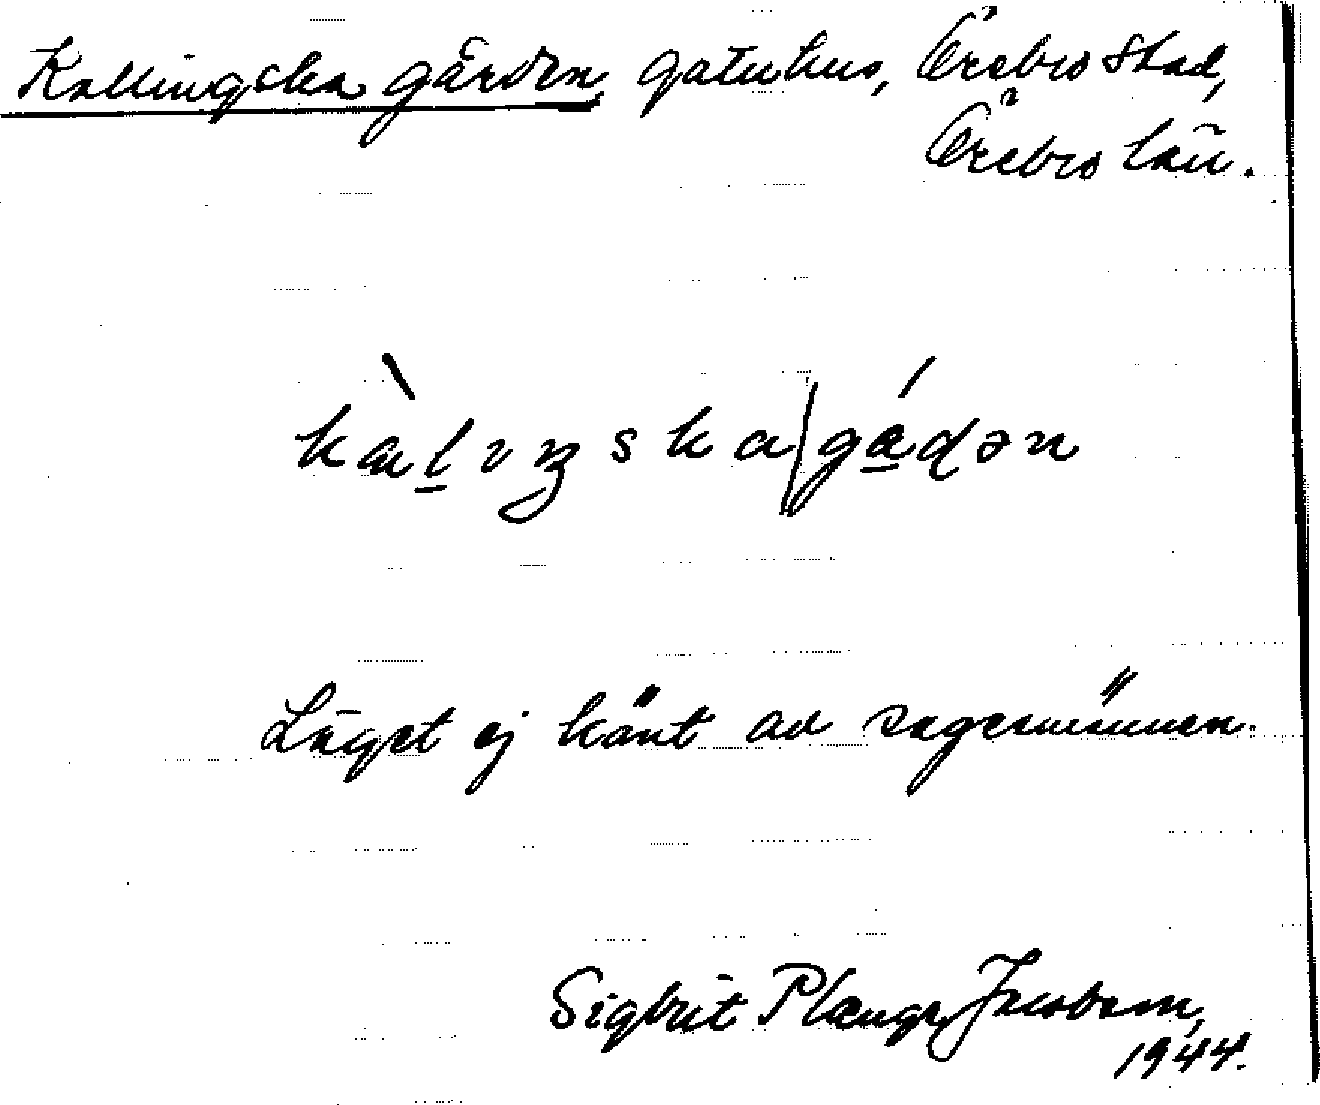 Kallingska gården, gatuhus, Örebro stad,
Örebro län.
kal̠ıŋska/gådən
Läget ej känt av sagesmännen.
Sigbrit Plænge Jacobson,
1944.